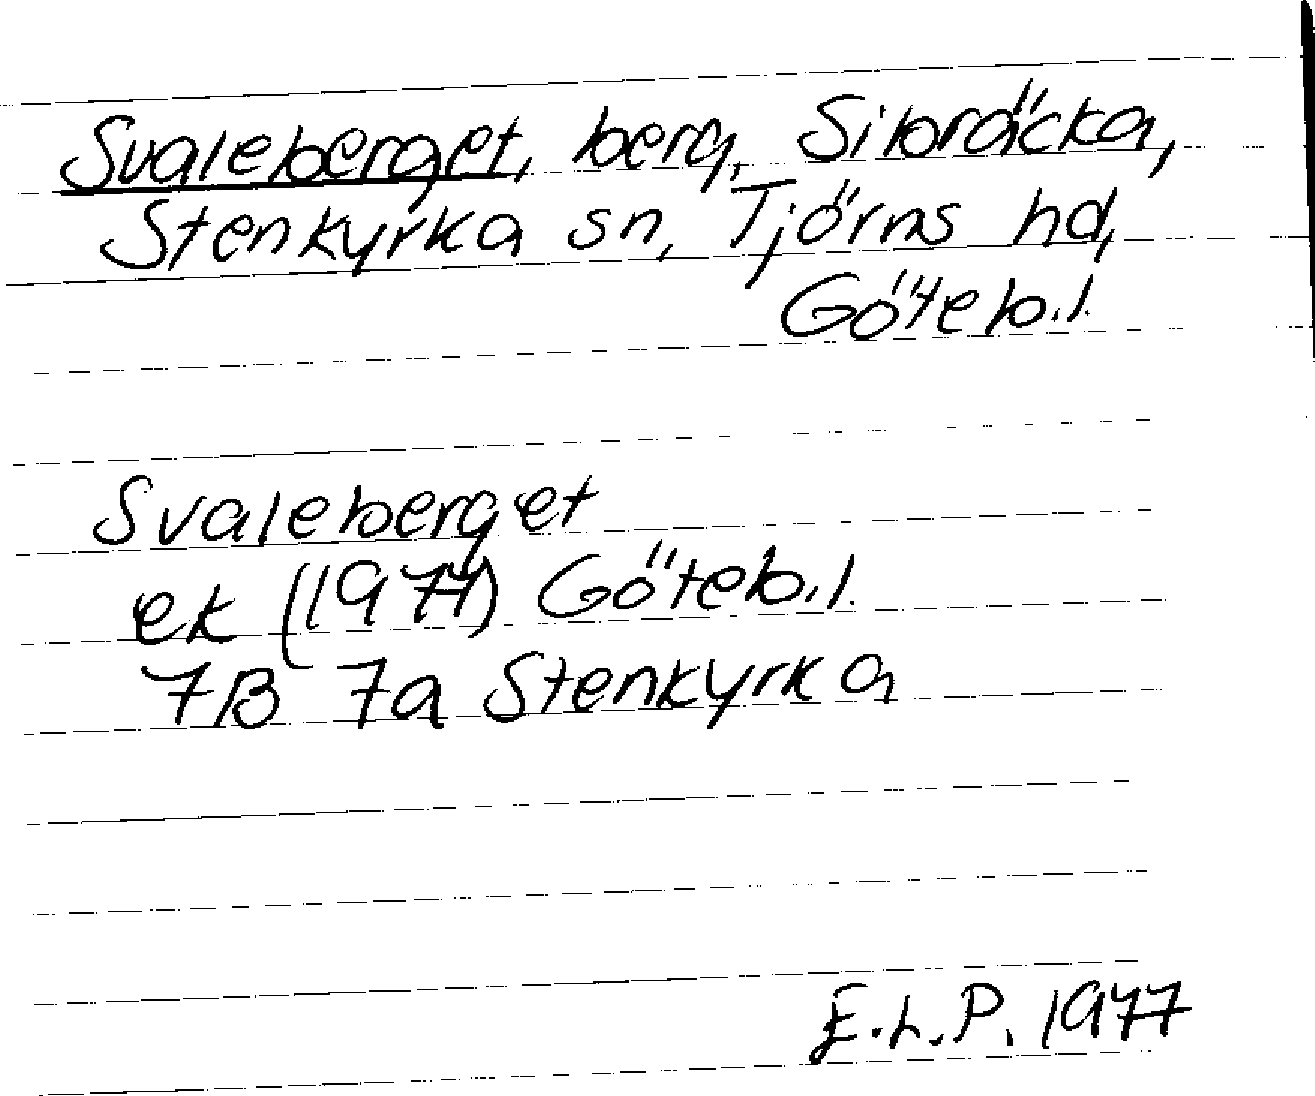 Svaleberget, berg, Sibräcka,
Stenkyrka sn, Tjörns hd,
Göteb.l.
Svaleberget
ek (1977) Göteb.l.
7B 7a Stenkyrka
E.L.P. 1977